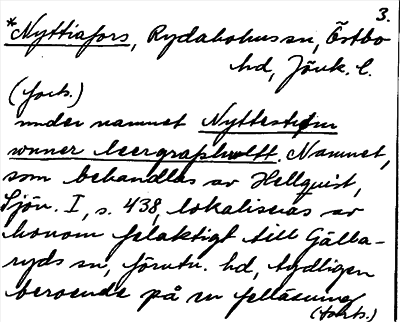 3.
*Nyttiafors, Rydaholms sn, Östbo
hd, Jönk. l.
(forts.)
under namnet Nyttestrøm
wnner leergraphwltt. Namnet,
som behandlas av Hellquist,
Sjön. I, s. 438, lokaliseras av
honom felaktigt till Gälla-
ryds sn, förutv. hd, tydligen
beroende på en felläsning
(forts.)